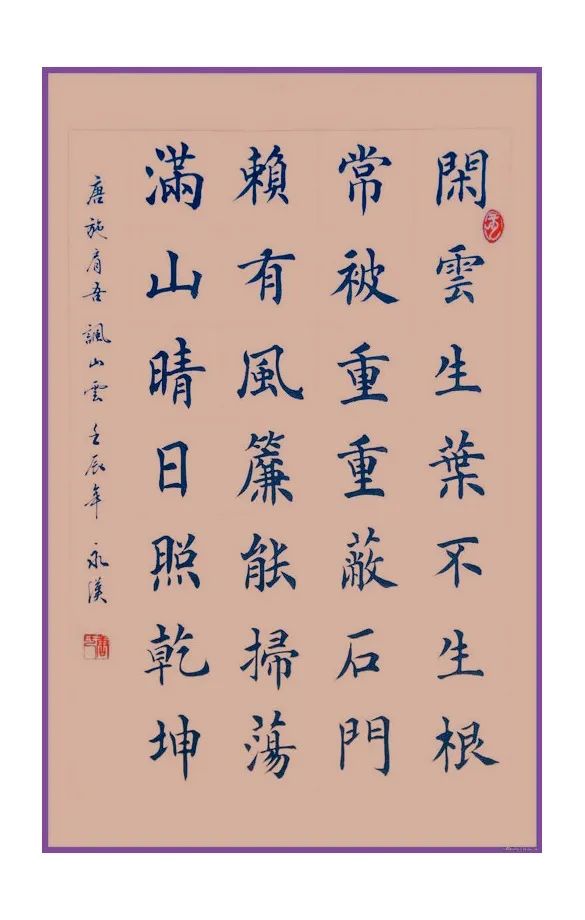 閑雲生葉不生根
常被重重蔽石門
賴有風簾能掃蕩
滿山晴日照乾坤
唐施肩吾諷山雲壬辰年永漢